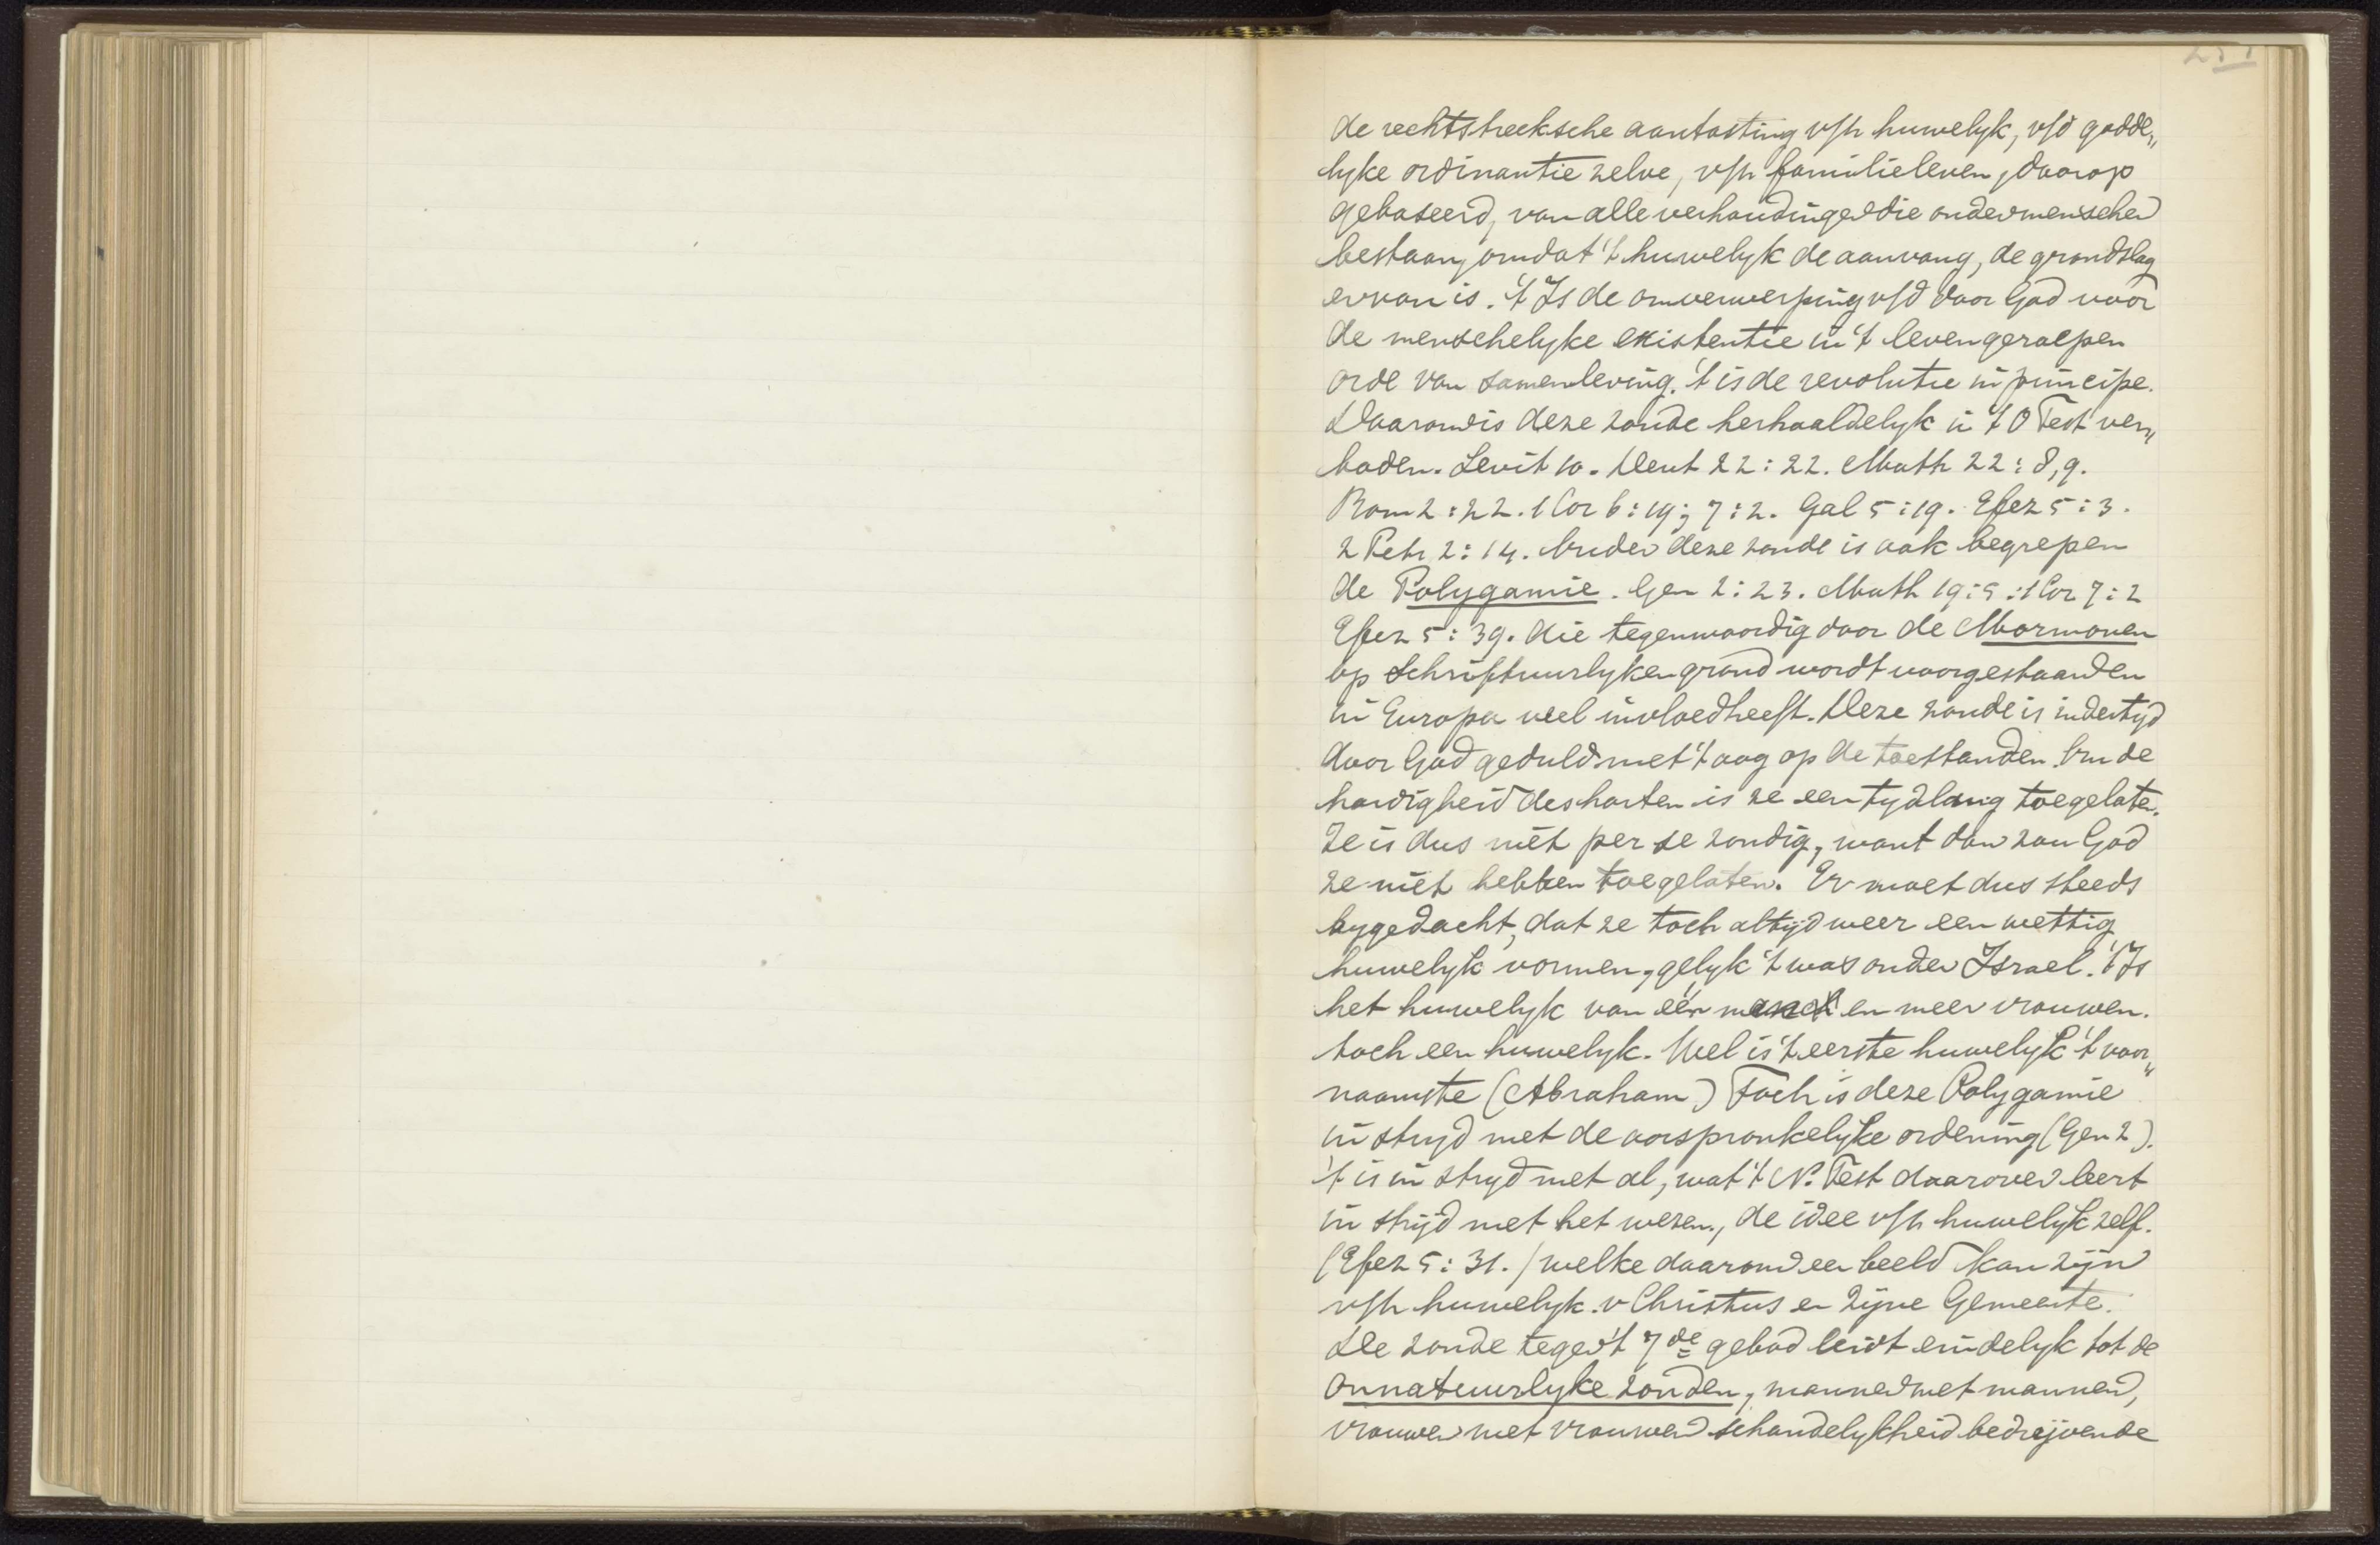 251
de rechtstreeksche aantasting v/h huwelyk, v/d godde„
lyke ordinantie zelve, v/h familieleven, daarop
gebaseerd, van alle verhoudingen die onder menschen
bestaan, omdat 't huwelyk de aanvang, de grondslag
ervan is. 't Is de omverwerping v/d door God voor
de menschelyke existentie in 't leven geroepen
orde van samenleving. 't is de revolutie in principe.
Daarom is deze zonde herhaaldelyk in 't O Test ver„
boden. Levit 10. Deut 22:22. Math 22:8,9.
Rom 2:22. 1 Cor 6:19; 7:2. Gal 5:19. Efez 5:3.
2 Petr 2:14. Onder deze zonde is ook begrepen
de Polygamie. Gen 2:23. Math 19:5. 1 Cor 7:2
Efez 5:39. die tegenwoordig door de Mormonen
op Schriftuurlyken grond wordt voorgestaan en
in Europa veel invloed heeft. Deze zonde is indertyd
door God geduld met 't oog op de toestanden. Om de
hardigheid des harten is ze een tydlang toegelaten.
Ze is dus niet per se zondig, want dan zou God
ze niet hebben toegelaten. Er moet dus steeds
bygedacht, dat ze toch altijd weer een wettig
huwelyk vormen, gelyk 't was onder Israel. 't Is
het huwelyk van één man en meer vrouwen.
toch een huwelyk. Wel is 't eerste huwelyk 't voor„
naamste (Abraham) Toch is deze Polygamie
in stryd met de oorspronkelyke ordening (Gen 2).
't is in stryd met al, wat 't N. Test daarover leert
in strijd met het wezen, de idee v/h huwelyk zelf.
(Efez 5:31.) welke daarom een beeld kan zijn
v/h huwelyk v Christus en Zijne Gemeente.
De zonde tegen 't 7de gebod leidt eindelyk tot de
onnatuurlyke zonden, mannen met mannen,
vrouwen met vrouwen schandelykheid bedrijvende